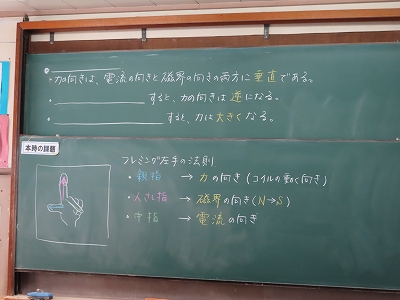 ・力の向きは、電流の向きと磁界の向きの両方に垂直である。
・____________ すると、力の向きは逆になる。
・____________ すると、力は大きくなる。
本時の課題
フレミング左手の法則
・親指 → 力の向き(コイルの動く向き)
・人さし指 → 磁界の向き(N→S)
・中指 → 電流の向き